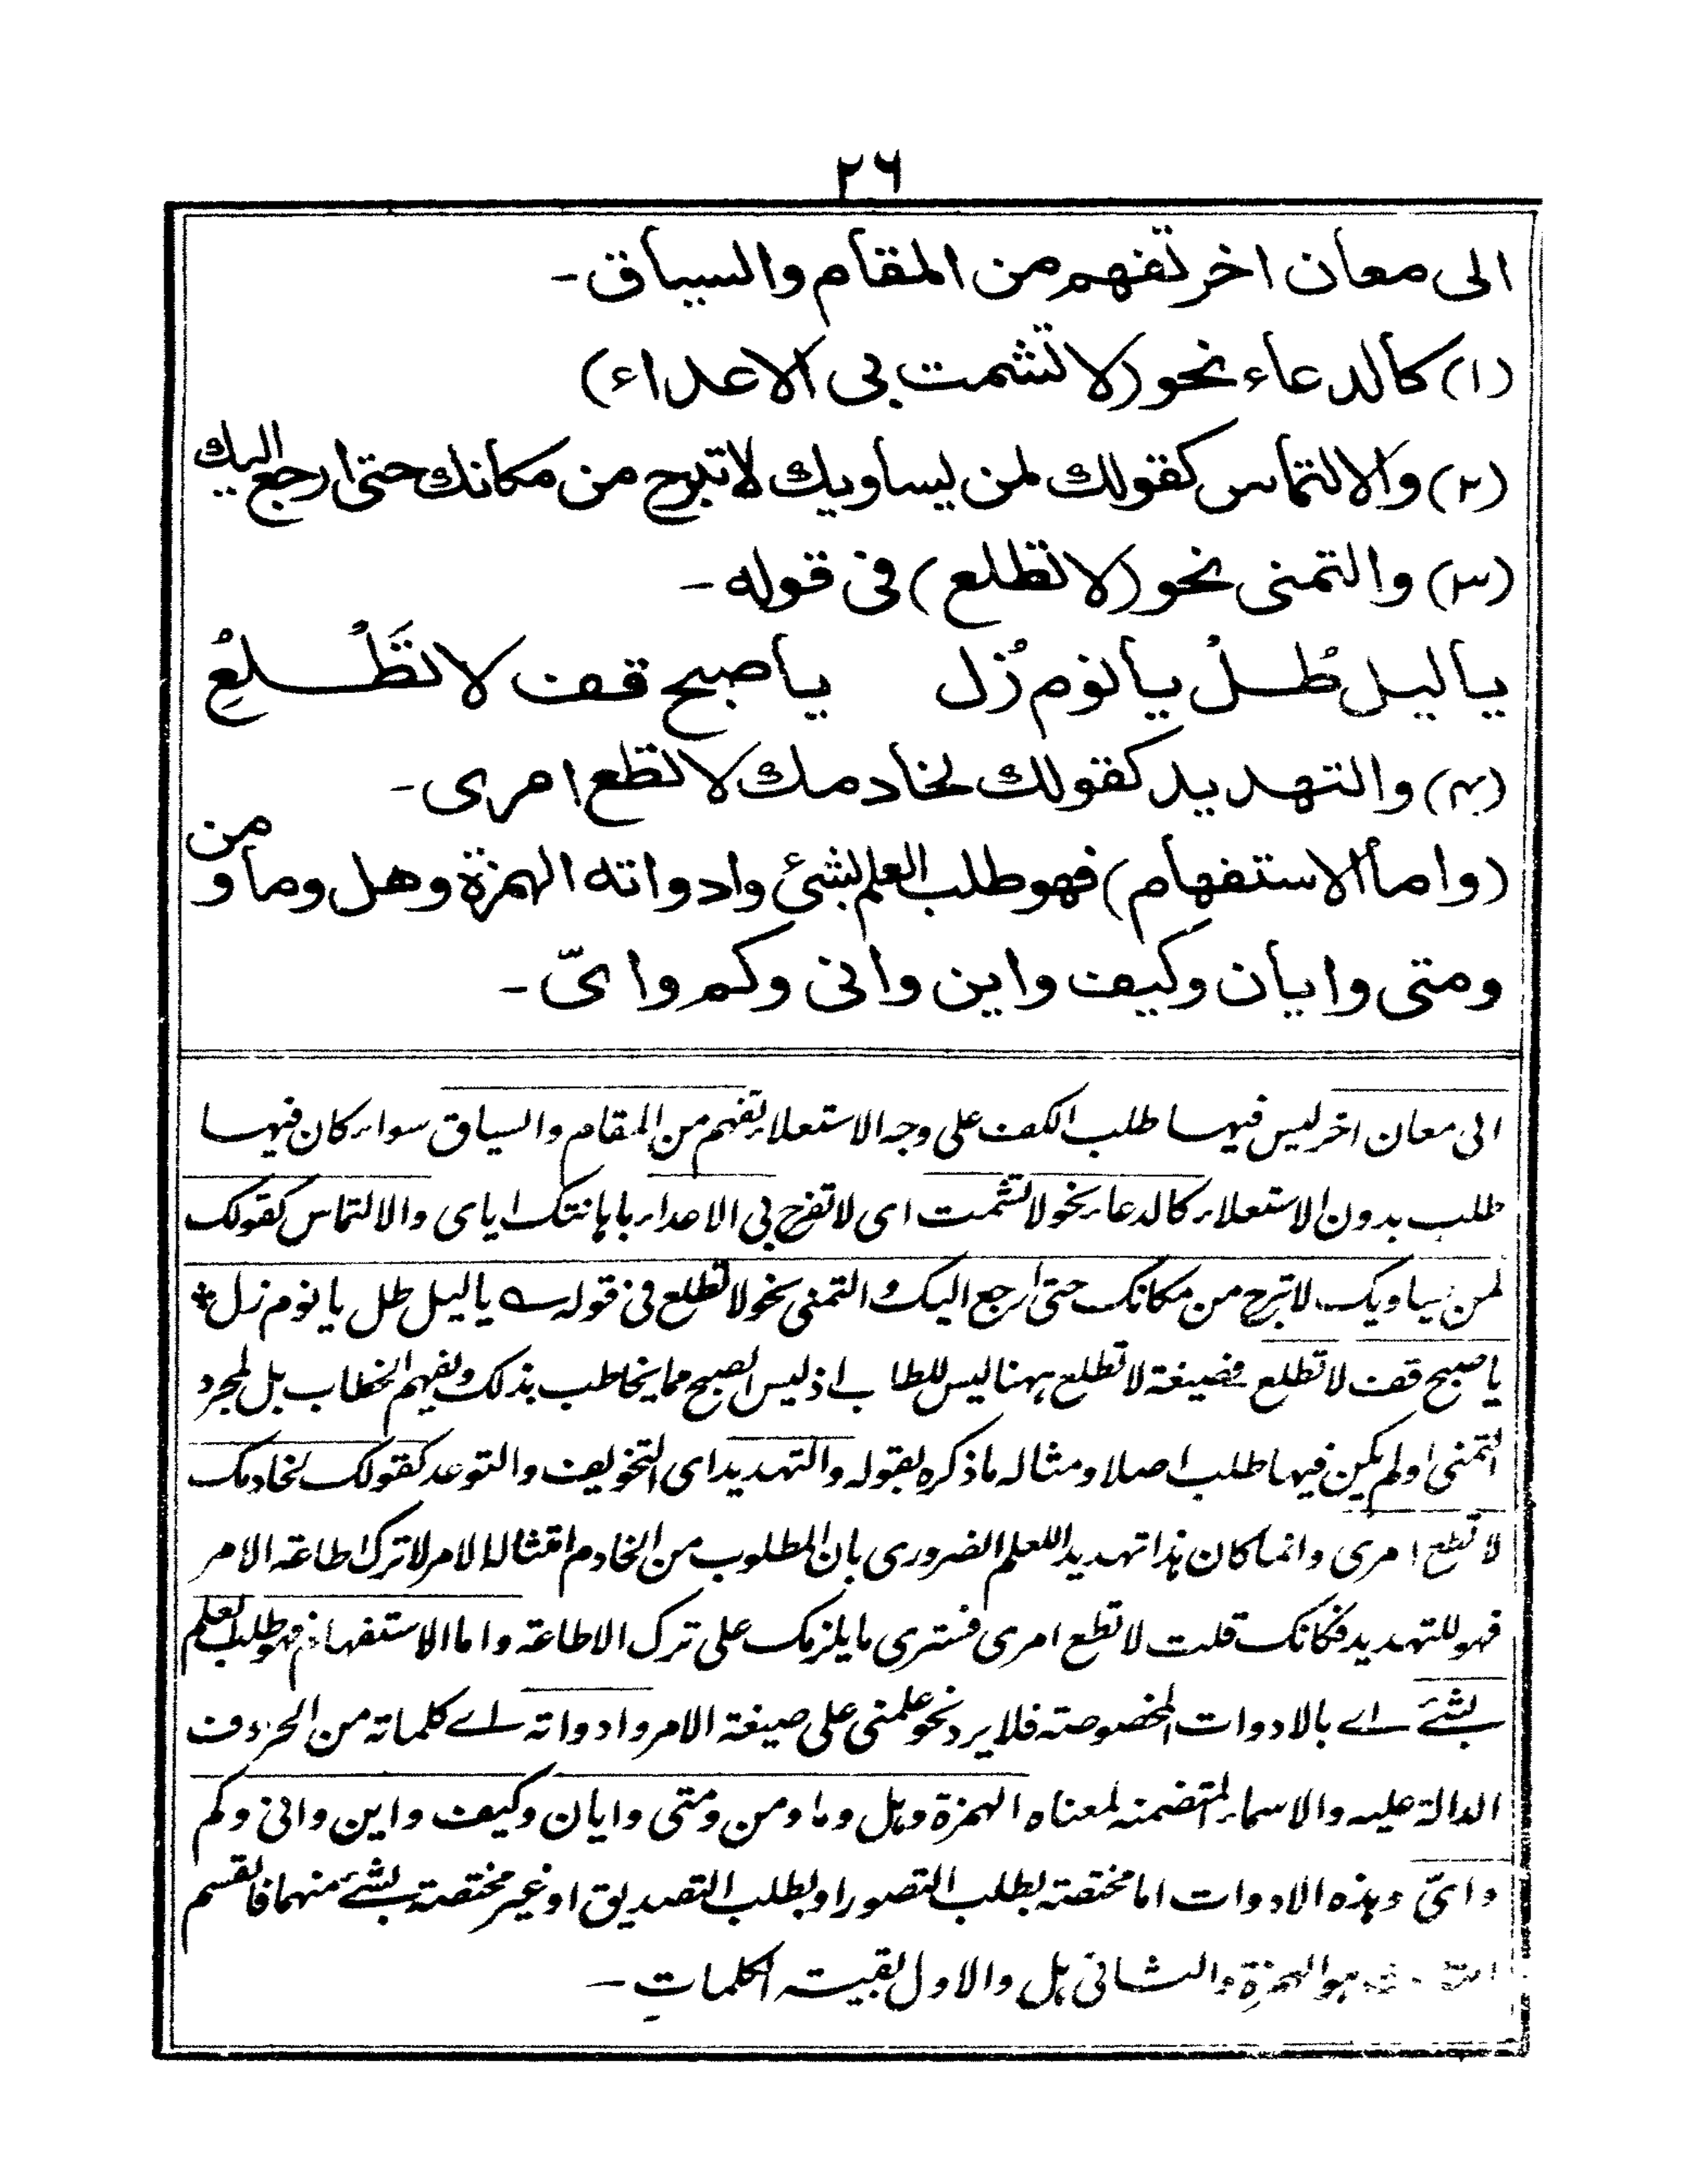 ٢٦
الى معان اخر تفهم من المقام والسياق -
(١) كالدعاء نحو (لا تشمت بى الاعداء)
(٢) والالتماس كقولك لمن يساويك لا تبرح من مكانك حتى ارجع اليك
(٣) والتمنى نحو (لا تطلع) فى قوله -
يا ليل طُلْ يا نوم زُل يا صبح قف لا تَطْلُعِ
(٤) والتهديد كقولك لخادمك لا تطع امرى -
(واما الاستفهام) فهو طلب العلم بشئ وادواته الهمزة وهل وما و من
ومتى وايان وكيف واين وانى وكم واىّ -
الى معان اخر ليس فيها طلب الكف على وجه الاستعلاء تفهم من المقام والسياق سواء كان فيها
طلب بدون الاستعلاء كالدعاء نحو لا تشمت اى لا تفرح بى الاعداء باهانتك اياى والالتماس كقولك
لمن يساويك لا تبرح من مكانك حتى ارجع اليك والتمنى نحو لا تطلع فى قوله ؎ يا ليل طل يا نوم زل *
يا صبح قف لا تطلع فصيغة لا تطلع ههنا ليس للطلب اذ ليس الصبح مما يخاطب بذلك ويفهم الخطاب بل لمجرد
التمنى او لم يكن فيها طلب اصلا ومثاله ما ذكره بقوله والتهديد اى التخويف والتوعد كقولك لخادمك
لا تطع امرى وانما كان هذا تهديدا للعلم الضرورى بان المطلوب من الخادم امتثاله الامر لا ترك اطاعة الامر
فهو للتهديد فكانك قلت لا تطع امرى فسترى ما يلزمك على ترك الاطاعة واما الاستفهام فهو طلب العلم
بشئ اے بالادوات المخصوصة فلا يرد نحو علمنى على صيغة الامر وادواته اے كلماته من الحروف
الدالة عليه والاسماء المتضمنة لمعناه الهمزة وهل وما ومن ومتى وايان وكيف واين وانى وكم
واىّ وهذه الادوات اما مختصة بطلب التصور او بطلب التصديق او غير مختصة بشئ منهما فالقسم
هو الهمزة والثانى هل والاول بقية الكلمات -